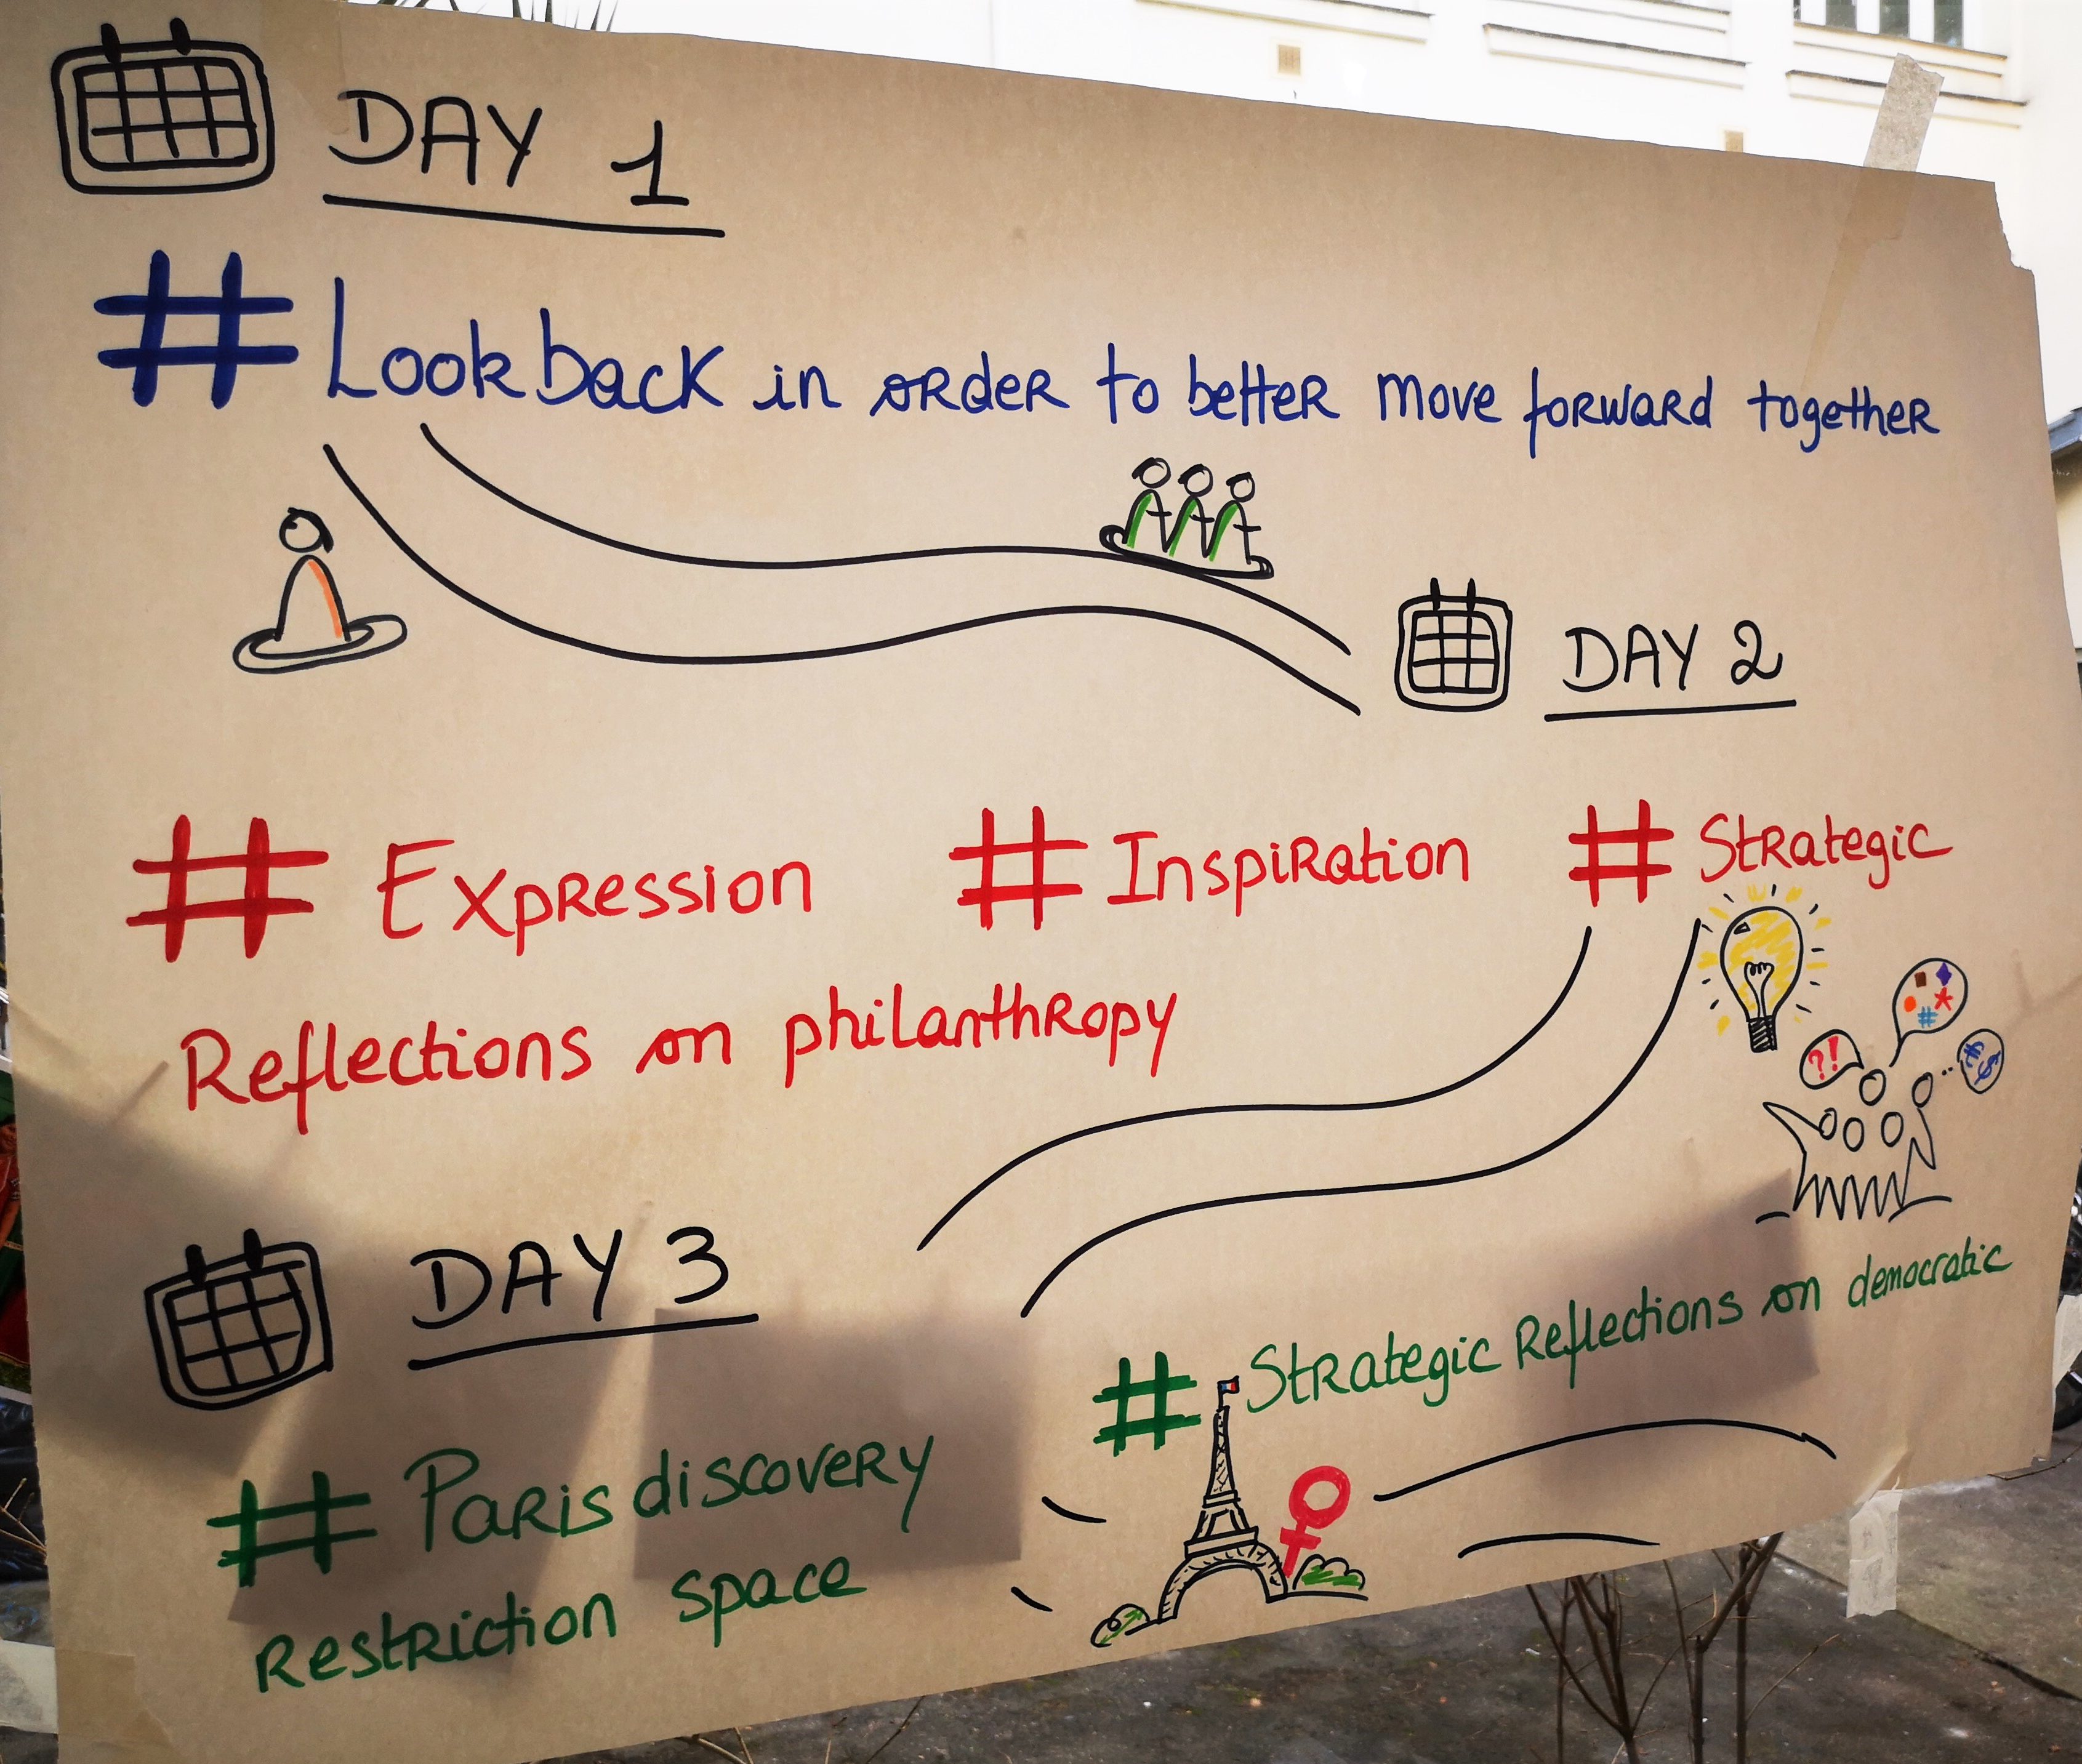 DAY 1
# Look back in order to better move forward together
DAY 2
# Expression # Inspiration # Strategic
Reflections on philanthropy
?!
#
€ $
DAY 3
# Strategic Reflections on democratic
# Paris discovery
restriction space